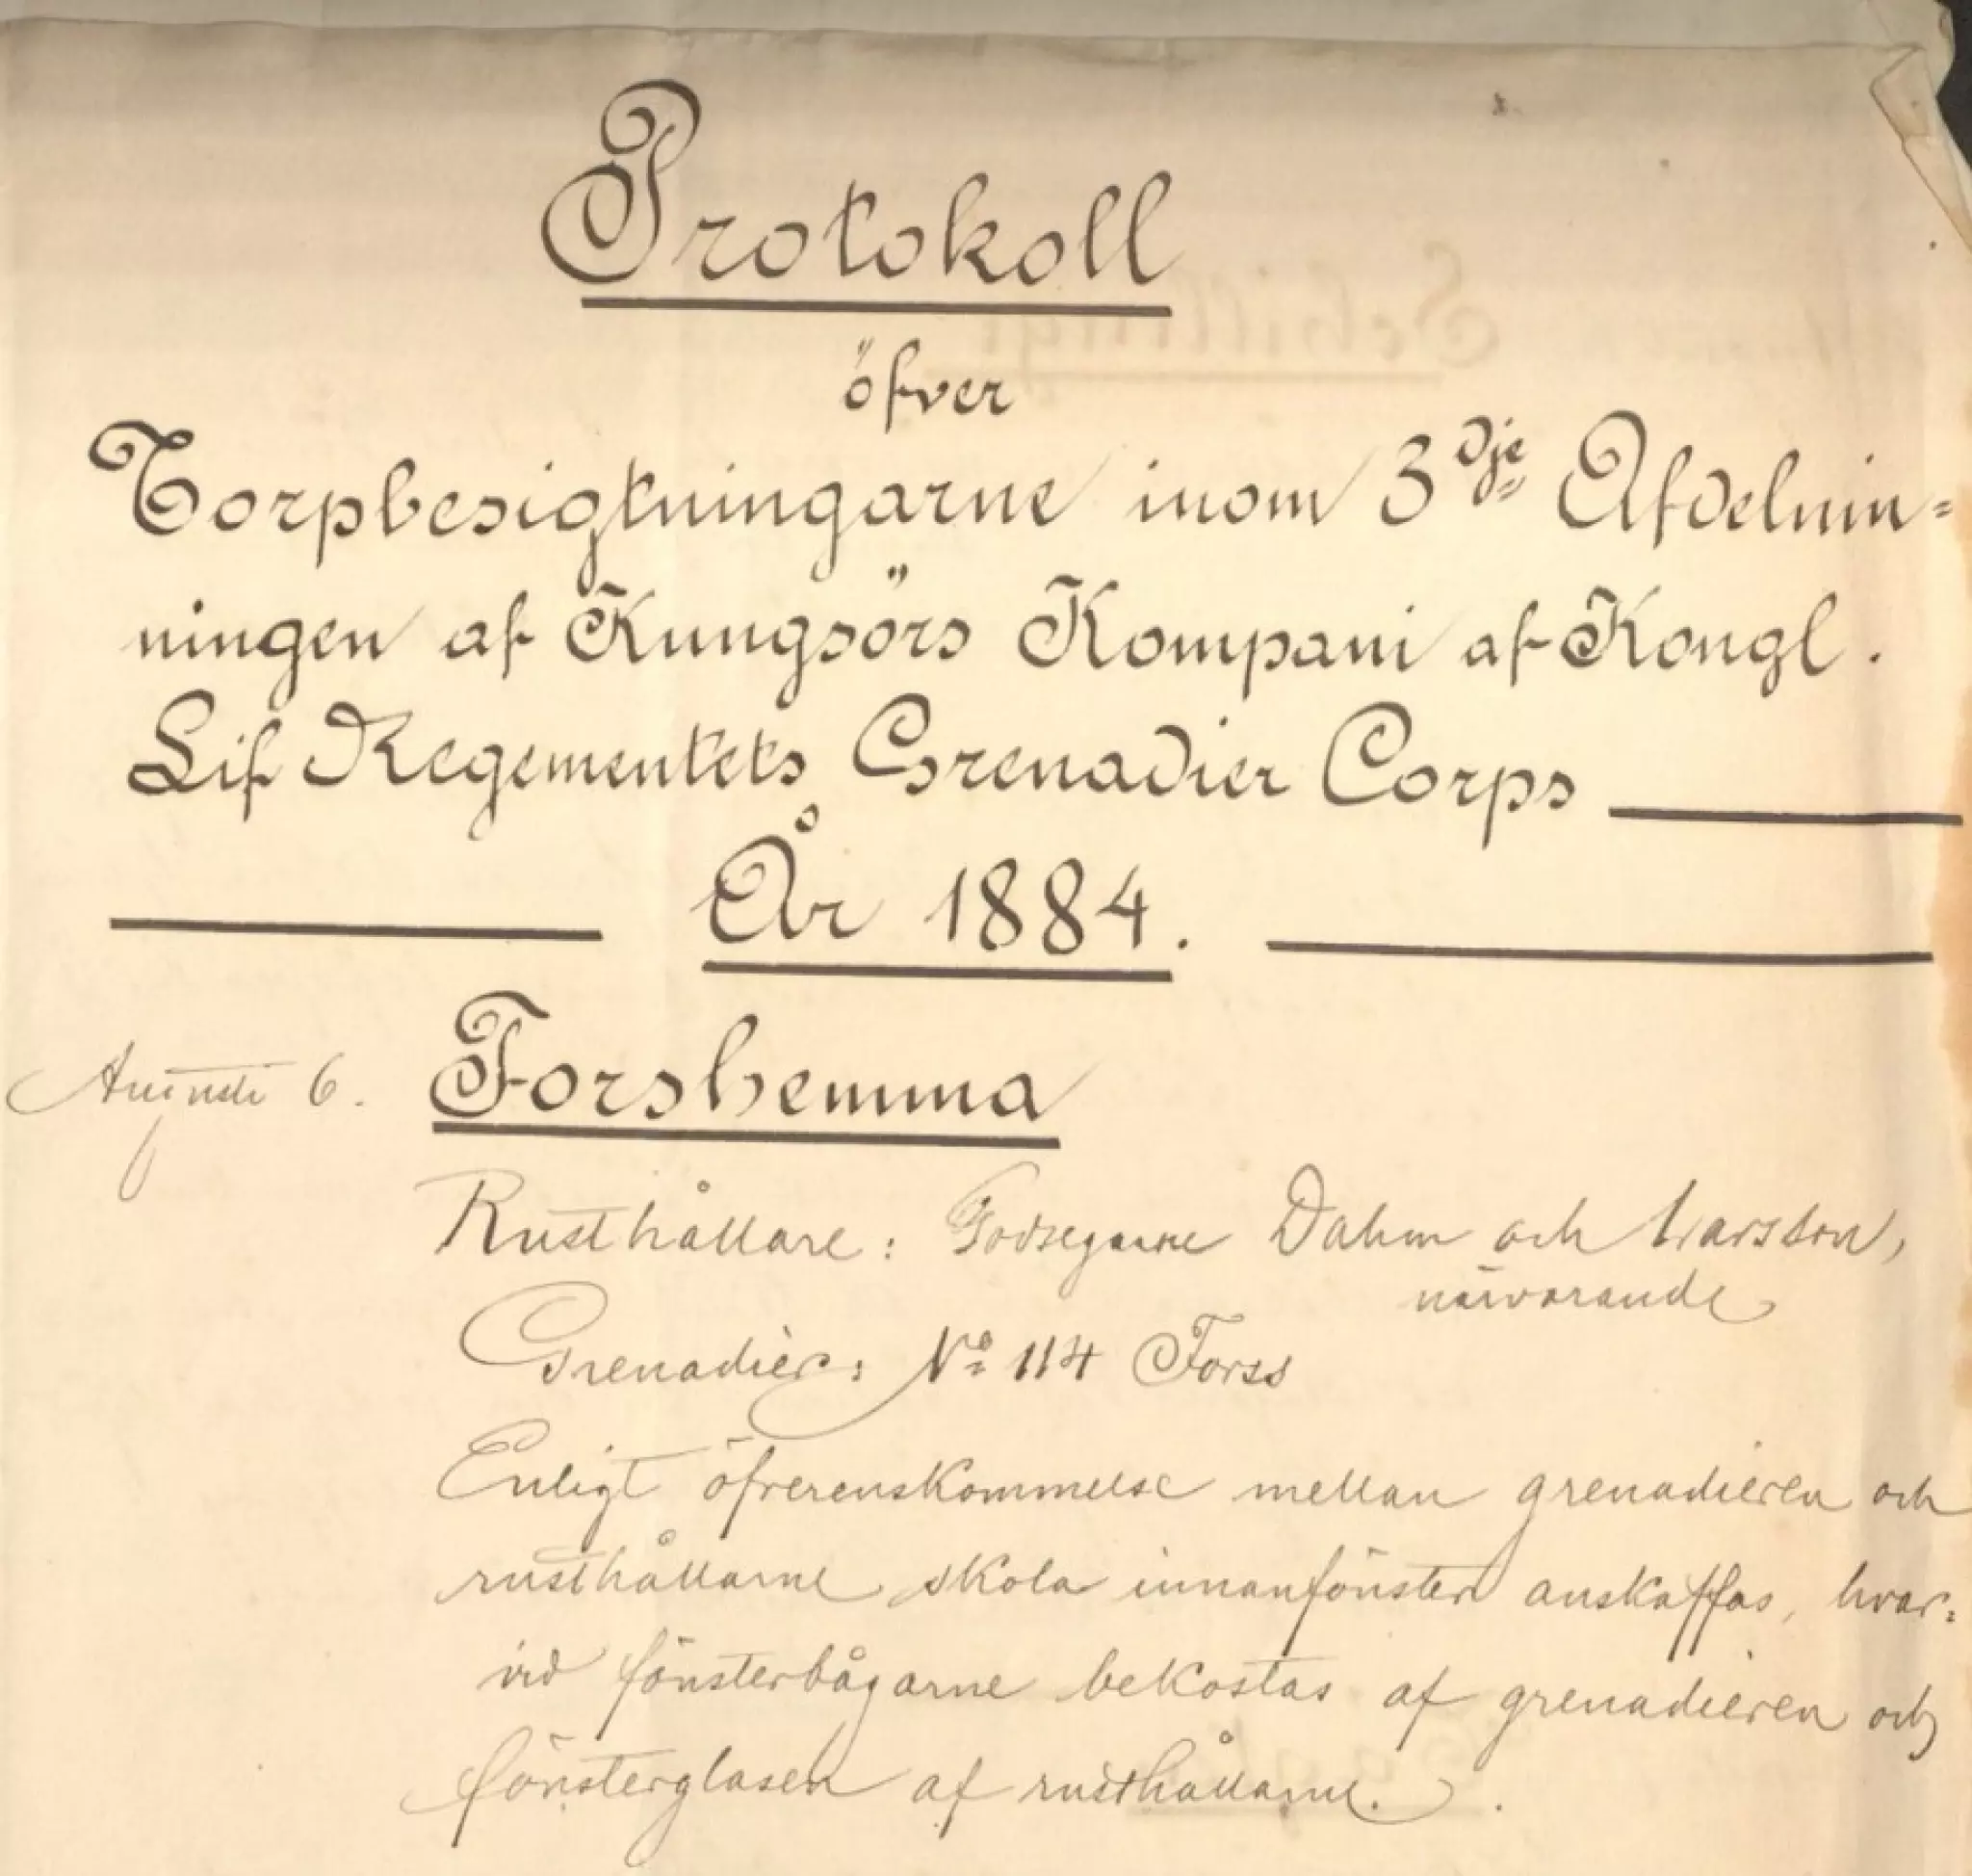 Protokoll
öfver
Torpbesigtningarne inom 3dje Afdelnin=
ningen af Kungsörs Kompani af Kongl.
Lif Regementets Grenadier Corps
År 1884.
Augusti 6. Forshemma
Rusthållare: Godsegarne Dahm och Larsson,
närvarande
Grenadier: No 114 Forss
Enligt öfverenskommelse mellan grenadieren och
rusthållarne skola innanfönster anskaffas, hvar=
vid fönsterbågarne bekostas af grenadieren och
fönsterglasen af rusthållarne.